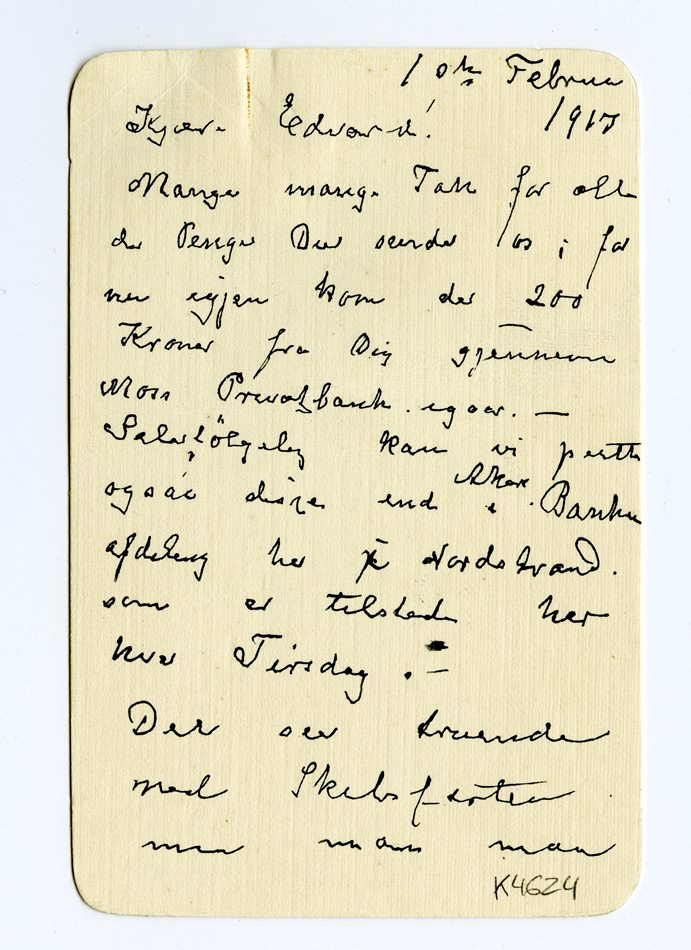 10de Februar
1917
Kjære Edvard!
Mange mange Tak for alle
de Penge Du sender os i for
nu igjen kom der 200
Kroner fra Dig gjennem
Moss Privatbank igaar. —
Selvfölgelig kan vi sætte
også disse ind i Aker Banks
afdeling her på Nordstrand.
som er tilstede her
hver Tirsdag. —
Det ser truende
med Skibsfarten
men man maa
K4624